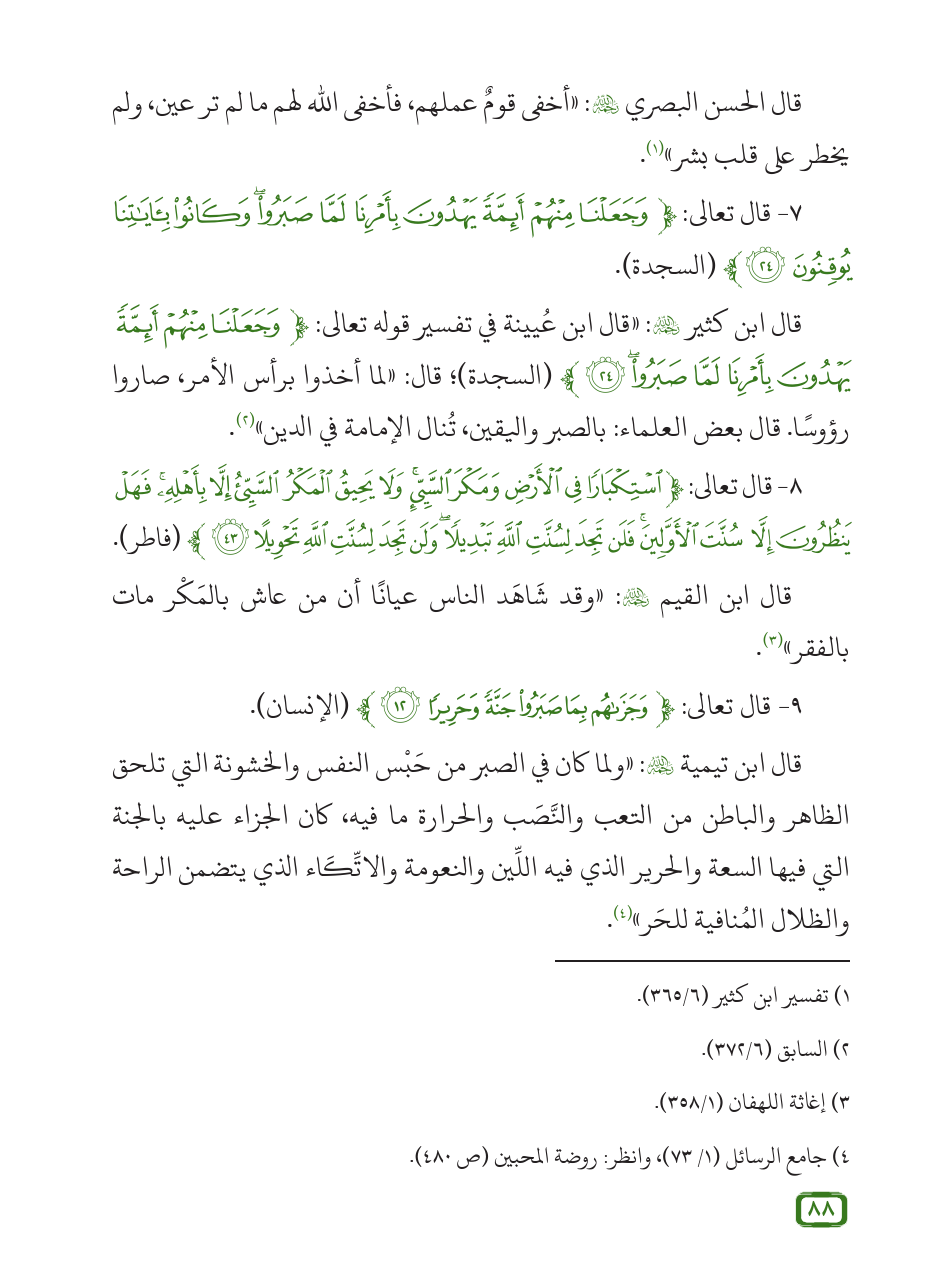 قال الحسن البصري ﵀: «أخفى قومٌ عملهم، فأخفى الله لهم ما لم تر عين، ولم
يخطر على قلب بشر»(١).
٧- قال تعالى: ﴿ وَجَعَلْنَا مِنْهُمْ أَئِمَّةً يَهْدُونَ بِأَمْرِنَا لَمَّا صَبَرُواْۖ وَكَانُواْ بِـَٔايَٰتِنَا
يُوقِنُونَ ٢٤ ﴾ (السجدة).
قال ابن كثير ﵀: «قال ابن عُيينة في تفسير قوله تعالى: ﴿ وَجَعَلْنَا مِنْهُمْ أَئِمَّةً
يَهْدُونَ بِأَمْرِنَا لَمَّا صَبَرُواْۖ ٢٤ ﴾ (السجدة)؛ قال: «لما أخذوا برأس الأمر، صاروا
رؤوسًا. قال بعض العلماء: بالصبر واليقين، تُنال الإمامة في الدين»(٢).
٨- قال تعالى: ﴿ ٱسْتِكْبَارًا فِي ٱلْأَرْضِ وَمَكْرَ ٱلسَّيِّئِۚ وَلَا يَحِيقُ ٱلْمَكْرُ ٱلسَّيِّئُ إِلَّا بِأَهْلِهِۦۚ فَهَلْ
يَنظُرُونَ إِلَّا سُنَّتَ ٱلْأَوَّلِينَۚ فَلَن تَجِدَ لِسُنَّتِ ٱللَّهِ تَبْدِيلًاۖ وَلَن تَجِدَ لِسُنَّتِ ٱللَّهِ تَحْوِيلًا ٤٣ ﴾ (فاطر).
قال ابن القيم ﵀: «وقد شَاهَد الناس عيانًا أن من عاش بالمَكْر مات
بالفقر»(٣).
٩- قال تعالى: ﴿ وَجَزَىٰهُم بِمَا صَبَرُواْ جَنَّةً وَحَرِيرًا ١٢ ﴾ (الإنسان).
قال ابن تيمية ﵀: «ولما كان في الصبر من حَبْس النفس والخشونة التي تلحق
الظاهر والباطن من التعب والنَّصَب والحرارة ما فيه، كان الجزاء عليه بالجنة
التي فيها السعة والحرير الذي فيه اللِّين والنعومة والاتِّكَاء الذي يتضمن الراحة
والظلال المُنافية للحَر»(٤).
١) تفسير ابن كثير (٣٦٥/٦).
٢) السابق (٣٧٢/٦).
٣) إغاثة اللهفان (٣٥٨/١).
٤) جامع الرسائل (١/ ٧٣)، وانظر: روضة المحبين (ص ٤٨٠).
٨٨